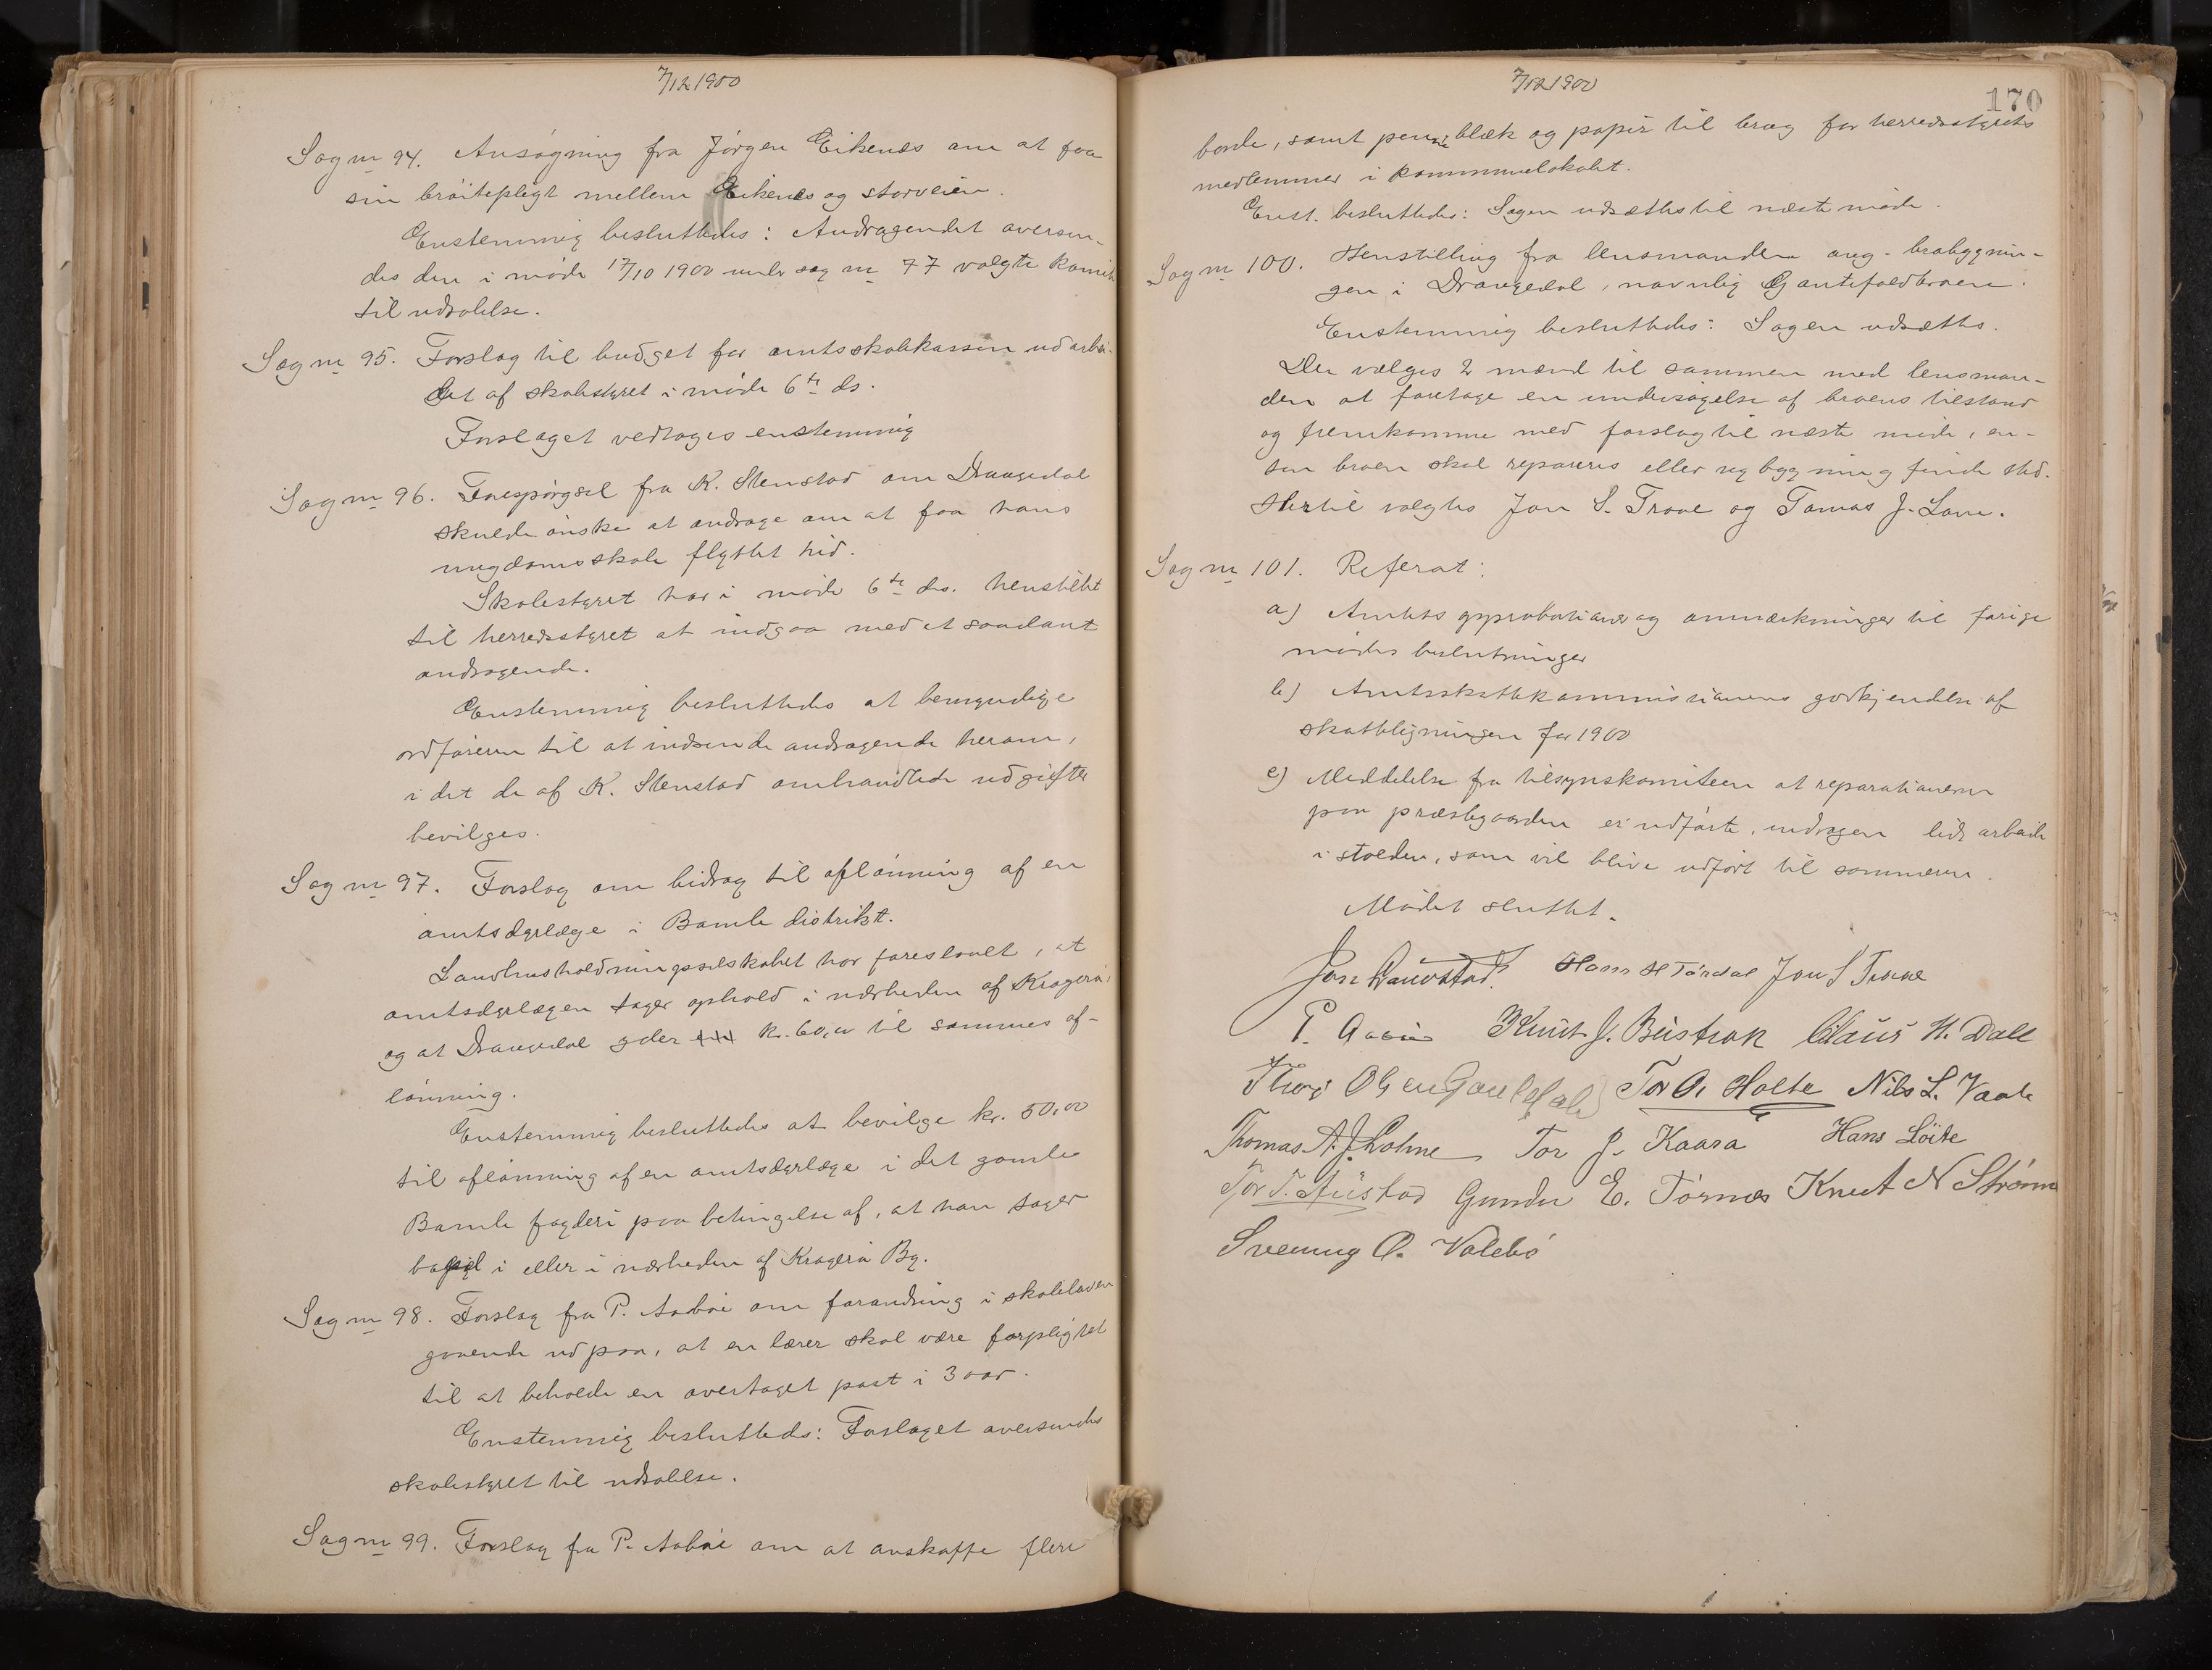 7/12 1900
Sag nr 94. Ansøgning fra Jørgen Eikenes om at faa
sin brøitepligt mellem Eikenes og storveien.
Enstemmig besluttedes: Andragendet oversen-
des den i møde 17/10 1900 under sag nr 77 valgte komite
til udtalelse.
Sag nr 95. Forslag til budget for amtsskolekassen udarbei-
det af skolestyret i møde 6te ds.
Forslaget vedtoges enstemmig
Sag nr 96. Forespørgsel fra K. Stenstad om Drangedal
skulde ønske at andrage om at faa hans
ungdomsskole flyttet hid.
Skolestyret har i møde 6te ds. henstillet
til herredsstyret at indgaa med et saadant
andragende.
Enstemmig besluttedes at bemyndige
ordføreren til at indsende andragende herom,
i det de af K. Stenstad omhandlede udgifter
bevilges.
Sag nr 97. Forslag om bidrag til aflønning af en
amtsdyrlæge i Bamle distrikt.
Landhusholdningsselskabet har foreslaaet, at
amtsdyrlægen tager ophold i nærheden af Kragerø,
og at Drangedal yder kr. 60,00 til sammes af-
lønning.
Enstemmig besluttedes at bevilge kr. 50,00
til aflønning af en amtsdyrlæge i det gamle
Bamle fogderi paa betingelse af, at han tager
bopæl i eller i nærheden af Kragerø By.
Sag nr 98. Forslag fra P. Aabøe om forandring i skoleloven
gaaende ud paa, at en lærer skal være forpligtet
til at beholde en overtaget post i 3 aar.
Enstemmig besluttedes: Forslaget oversendes
skolestyret til udtalelse.
Sag nr 99. Forslag fra P. Aabøe om at anskaffe flere
7/12 1900
170
borde, samt penne, blæk og papir til brug for herredsstyrets
medlemmer i kommunelokalet.
Enst. besluttedes: Sagen udsættes til næste møde.
Sag nr 100. Henstilling fra lensmanden ang. brobygnin-
gen i Drangedal, navnlig Gautefaldbroen.
Enstemmig besluttedes: Sagen udsættes.
Der vælges 2 mænd til sammen med lensman-
den at foretage en undersøgelse af broens tilstand
og fremkomme med forslag til næste møde, en-
ten broen skal repareres eller nybygning finde sted.
Hertil valgtes Jon S. Traae og Tomas J. Lone.
Sag nr 101. Referat:
a) Amtets approbationer og anmærkninger til forige
mødes beslutninger
b) Amtsskattekommissionens godkjendelse af
skatteligningen for 1900
c) Meddelelse fra tilsynskomiteen at reparationerne
paa præstegaarden er udførte, undtagen lidt arbeide
i stalden, som vil blive udført til sommeren.
Mødet sluttet.
Hans H Tørdal Jon S Traae
P. Knut J. Bustrak Claus H. Dale
Olsen Gautefald Tor O. Holte Nils L. Vaale
Thomas A. J. Lohne Tor J. Kaasa Hans Löite
Tor T. Austad Gunder E. Tørnes Knut N Strømme
Sveinung O. Valebø